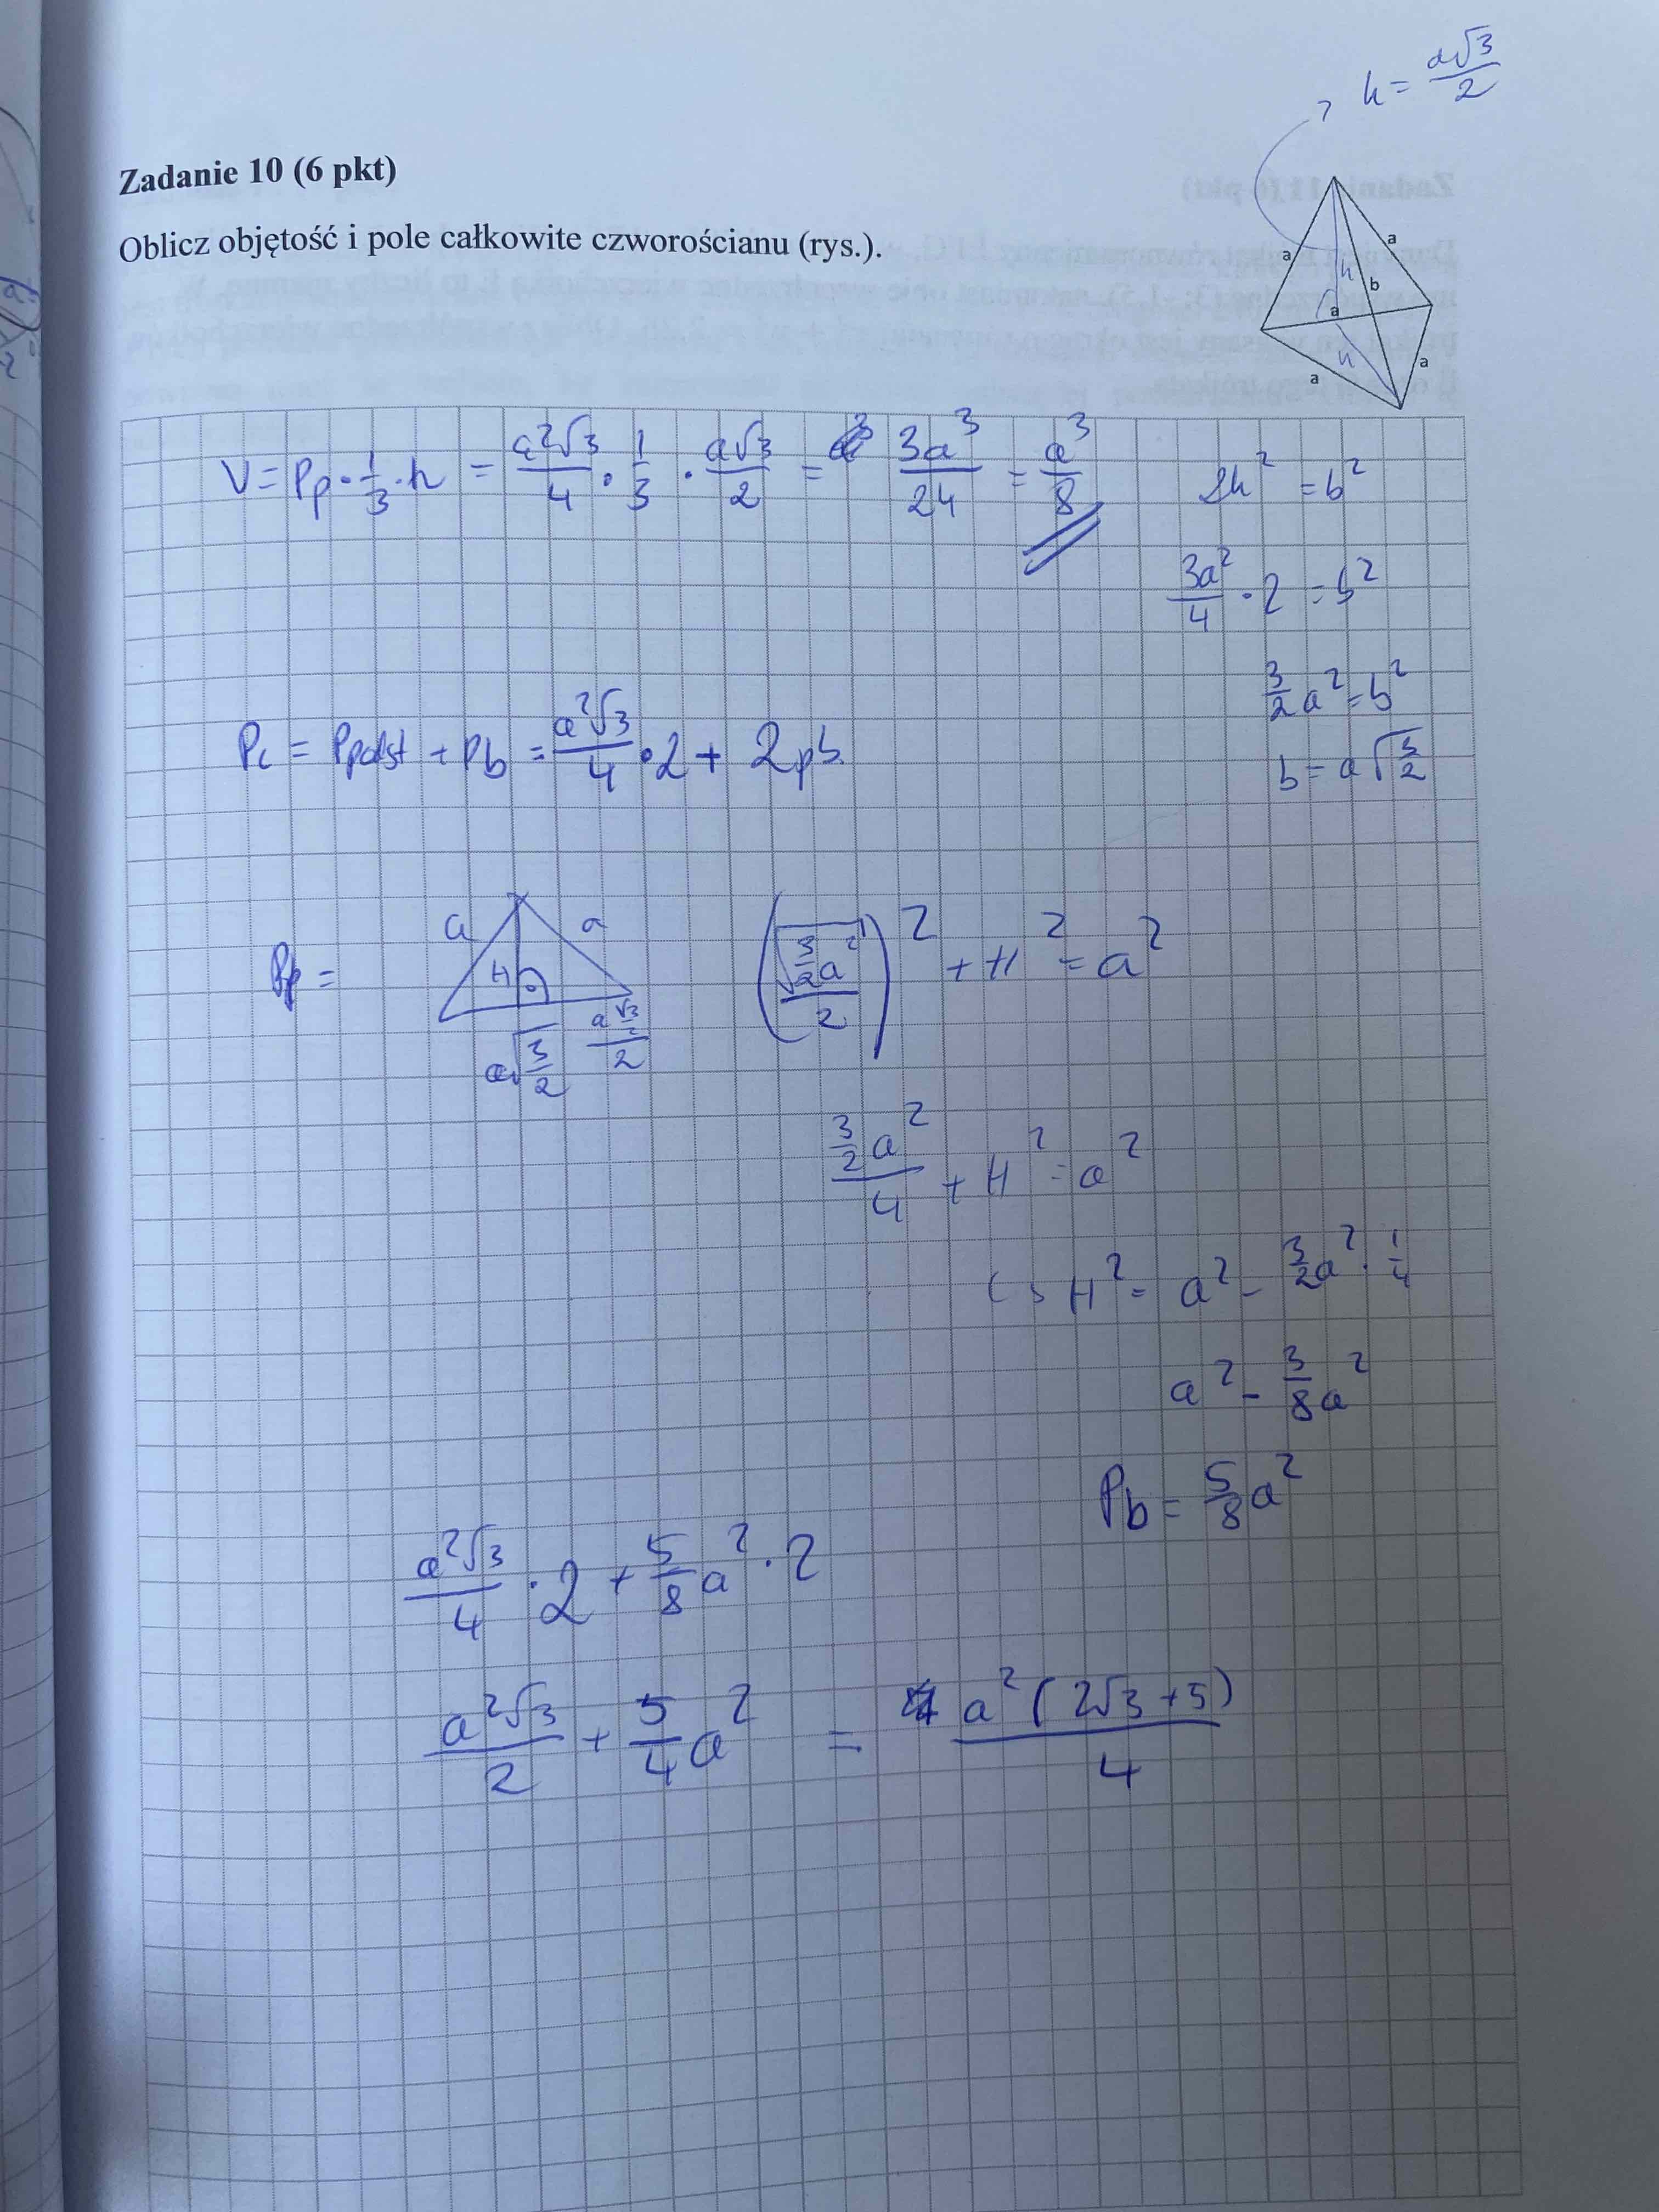 h = a√3/2
Zadanie 10 (6 pkt)
Oblicz objętość i pole całkowite czworościanu (rys.).
a
a
h
b
a
h
a
a
V = Pp · 1/3 · h = a²√3/4 · 1/3 · a√3/2 = 3a³/24 = a³/8
2h² = b²
3a²/4 · 2 = b²
3/2 a² = b²
b = a√(3/2)
Pc = Ppodst + Pb = a²√3/4 · 2 + 2pb
Pp =
a
a
H
a√(3/2)
a√(3/2)/2
(√(3/2 a²)/2)² + H² = a²
3/2 a²/4 + H² = a²
H² = a² - 3/2 a² · 1/4
a² - 3/8 a²
Pb = 5/8 a²
a²√3/4 · 2 + 5/8 a² · 2
a²√3/2 + 5/4 a² = a²(2√3 + 5)/4